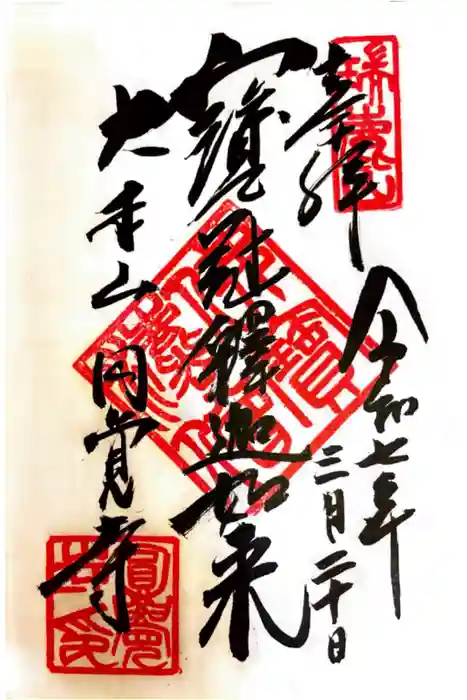 瑞鹿山
奉拝
令和七年
三月二十日
寳冠釋迦如来
大本山円覚寺